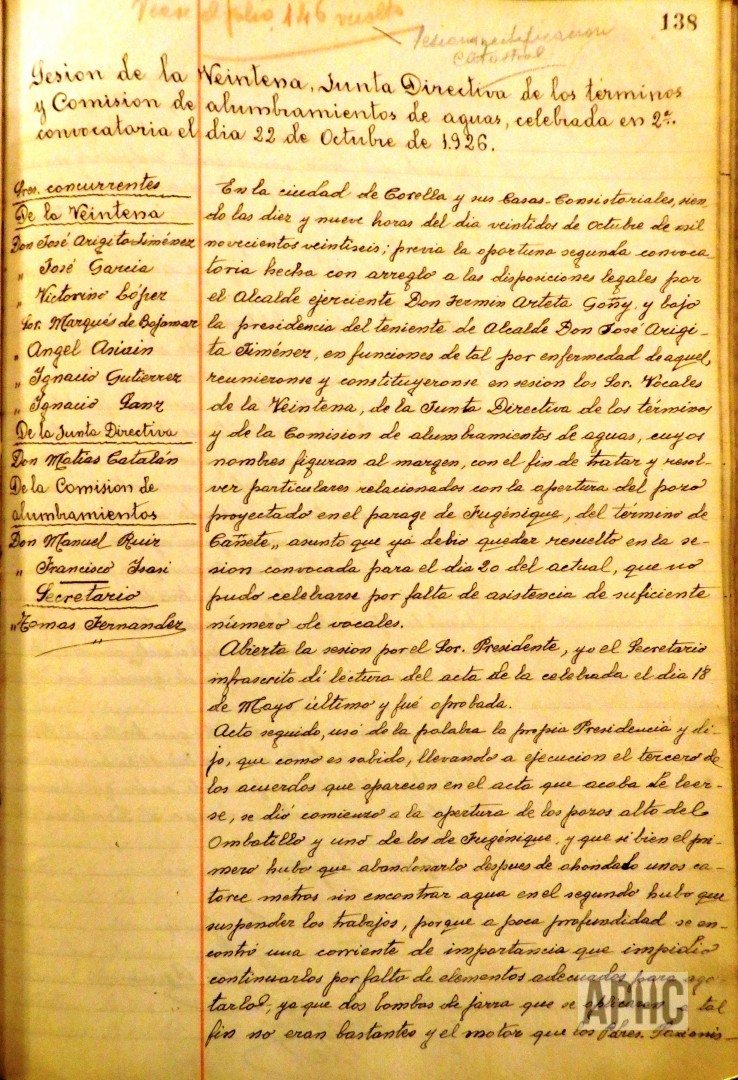 Vease el folio 146 vuelto
138
Sesion de la Veintena, Junta Directiva de los términos
y Comision de alumbramientos de aguas, celebrada en 2ª.
convocatoria el dia 22 de Octubre de 1.926.
Sres. concurrentes
De la Veintena
Don José Arigita Jiménez
„ José Garcia
„ Victorino López
Sor. Marqués de Bajamar
„ Angel Asiain
„ Ignacio Gutierrez
„ Ignacio Sanz
De la Junta Directiva
Don Matías Catalán
De la Comision de
alumbramientos
Don Manuel Ruiz
„ Francisco Isasi
Secretario
„ Tomas Fernandez
En la ciudad de Corella y sus Casas-Consistoriales, sien-
do las diez y nueve horas del dia veintidos de Octubre de mil
novecientos veintiseis; previa la oportuna segunda convoca-
toria hecha con arreglo a las disposiciones legales por
el Alcalde ejerciente Don Fermin Arteta Goñy, y bajo
la presidencia del teniente de Alcalde Don José Arigi-
ta Jiménez, en funciones de tal por enfermedad de aquel,
reunieronse y constituyeronse en sesion los Sor. Vocales
de la Veintena, de la Junta Directiva de los términos
y de la Comision de alumbramientos de aguas, cuyos
nombres figuran al margen, con el fin de tratar y resol-
ver particulares relacionados con la apertura del pozo
proyectado en el parage de Fugénique, del término de
Cañete, asunto que yá debio quedar resuelto en la se-
sion convocada para el dia 20 del actual, que no
pudo celebrarse por falta de asistencia de suficiente
número de vocales.
Abierta la sesion por el Sor. Presidente, yo el Secretario
infrascrito di lectura del acta de la celebrada el dia 18
de Mayo último y fué aprobada.
Acto seguido, usó de la palabra la propia Presidencia y di-
jo, que como es sabido, llevando a ejecucion el tercero de
los acuerdos que aparecen en el acta que acaba de leer-
se, se dió comienzo a la apertura de los pozos alto del
Ombatillo y uno de los de Fugénique, y que si bien el pri-
mero hubo que abandonarlo despues de ahondado unos ca-
torce metros sin encontrar agua en el segundo hubo que
suspender los trabajos, porque a poca profundidad se en-
contró una corriente de importancia que impidió
continuarlos por falta de elementos adecuados para ago-
tarla, ya que dos bombas de jarra que se aplicaron tal
fin no eran bastantes y el motor que los Pdres. Pasionis-
APHC